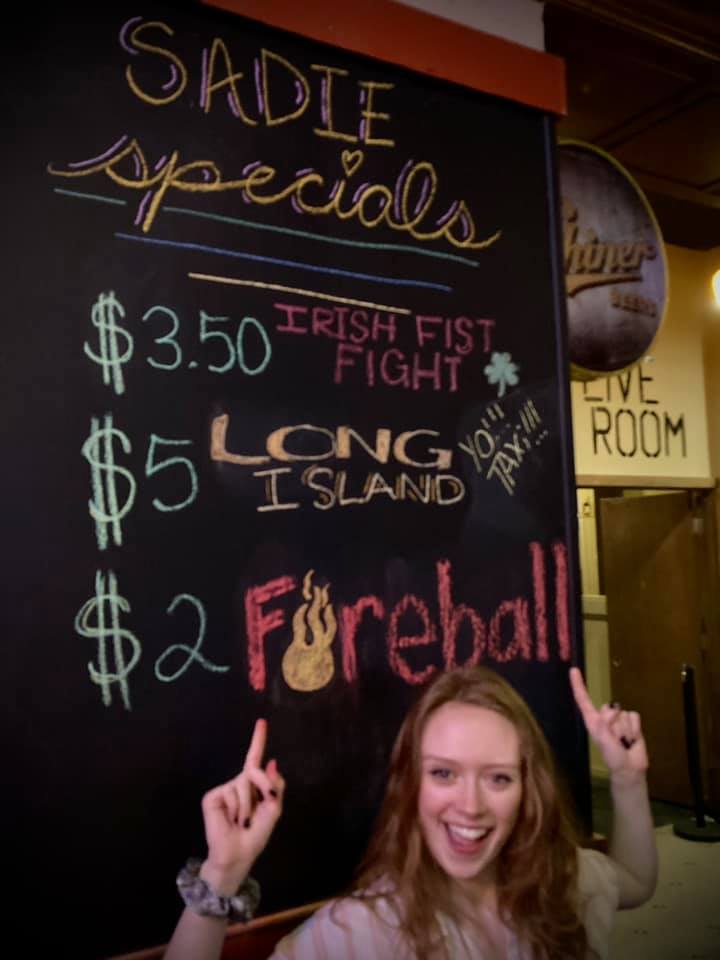 SADIE
specials
$3.50 IRISH FIST
FIGHT
$5 LONG
ISLAND
YO!!...!!!
TAX!...
$2 Fireball
Shiner
BEERS
LIVE
ROOM